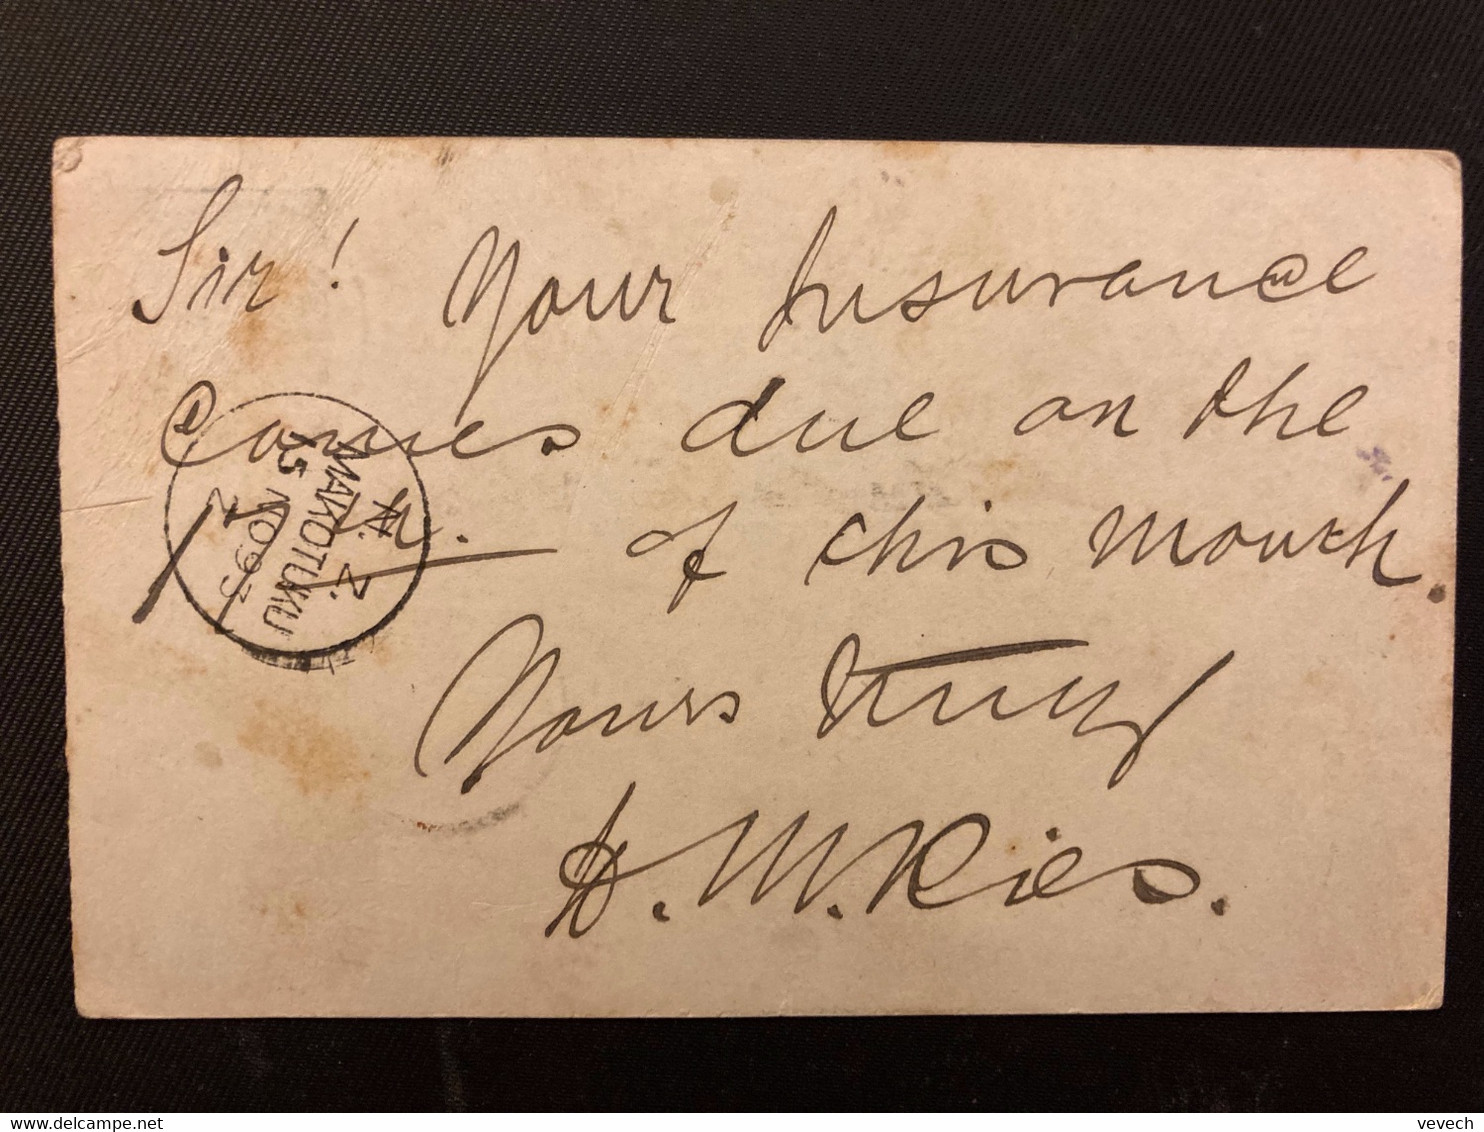 Sir! Your Insurance
Comes due on the
of this Month.
Yours truly
H. M. Ries.
N. Z.
MAKOTUKU
15 NO 93
vevech